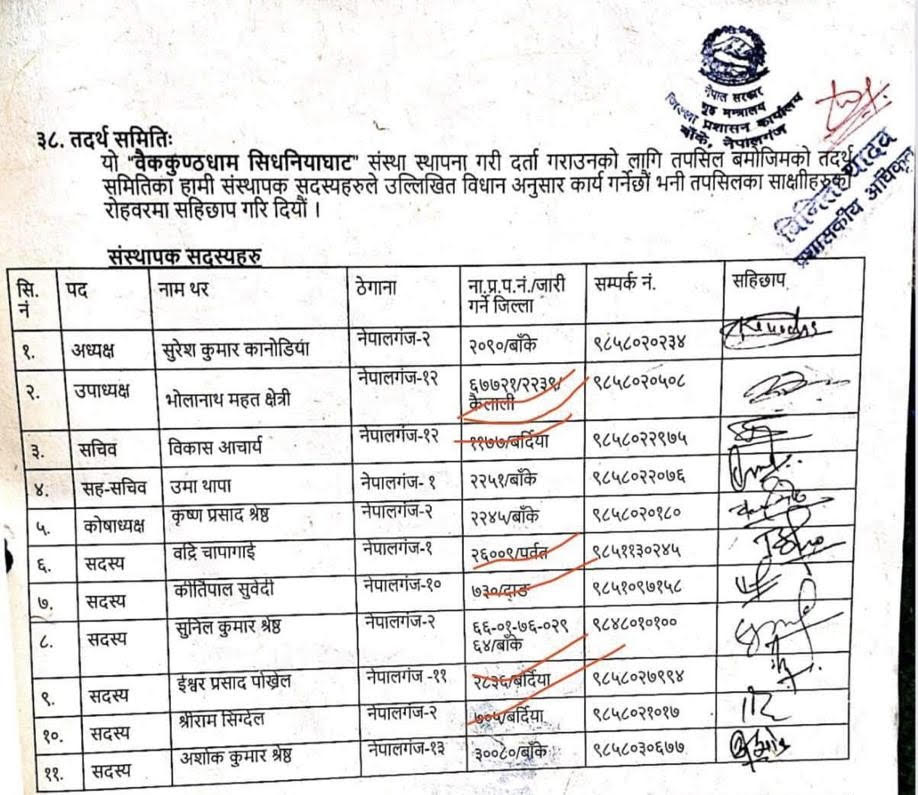 नेपाल सरकार
गृह मन्त्रालय
जिल्ला प्रशासन कार्यालय
बाँके, नेपालगंज
३८. तदर्थ समितिः
यो "वैककुण्ठधाम सिधनियाघाट" संस्था स्थापना गरी दर्ता गराउनको लागि तपसिल बमोजिमको तदर्थ
समितिका हामी संस्थापक सदस्यहरुले उल्लिखित विधान अनुसार कार्य गर्नेछौं भनी तपसिलका साक्षीहरुको
रोहवरमा सहिछाप गरि दियौं ।
प्रशासकीय अधिकृत
संस्थापक सदस्यहरु
सि. नं पद नाम थर ठेगाना ना.प्र.प.नं./जारी गर्ने जिल्ला सम्पर्क नं. सहिछाप
१. अध्यक्ष सुरेश कुमार कानोडिया नेपालगंज-२ २०९०/बाँके ९८५८०२०२३४
२. उपाध्यक्ष भोलानाथ महत क्षेत्री नेपालगंज-१२ ६७७२१/२२३९/ कैलाली ९८५८०२०५०८
३. सचिव विकास आचार्य नेपालगंज-१२ ११७७/बर्दिया ९८५८०२२९७५
४. सह-सचिव उमा थापा नेपालगंज- १ २२५१/बाँके ९८५८०२२०७६
५. कोषाध्यक्ष कृष्ण प्रसाद श्रेष्ठ नेपालगंज-२ २२४५/बाँके ९८५८०२०१८०
६. सदस्य वद्रि चापागाई नेपालगंज-१ २६००९/पर्वत ९८५११३०२४५
७. सदस्य कीर्तिपाल सुवेदी नेपालगंज-१० ७३०/दाङ ९८५१०९७१५८
८. सदस्य सुनिल कुमार श्रेष्ठ नेपालगंज-२ ६६-०१-७६-०२९ ६४/बाँके ९८४८०१०१००
९. सदस्य ईश्वर प्रसाद पोख्रेल नेपालगंज -११ २८३६/बर्दिया ९८५८०२७९९४
१०. सदस्य श्रीराम सिग्देल नेपालगंज-२ ७०५/बर्दिया ९८५८०२१०१७
११. सदस्य अशोक कुमार श्रेष्ठ नेपालगंज-१३ ३००८०/बाँके ९८५८०३०६७७